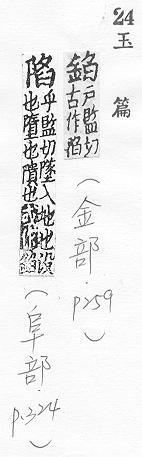 24
玉篇
錎戶監切
古作陷
(金部.p259)
陷乎監切墜入地也沒
也墮也隤也
(阜部.p.324)